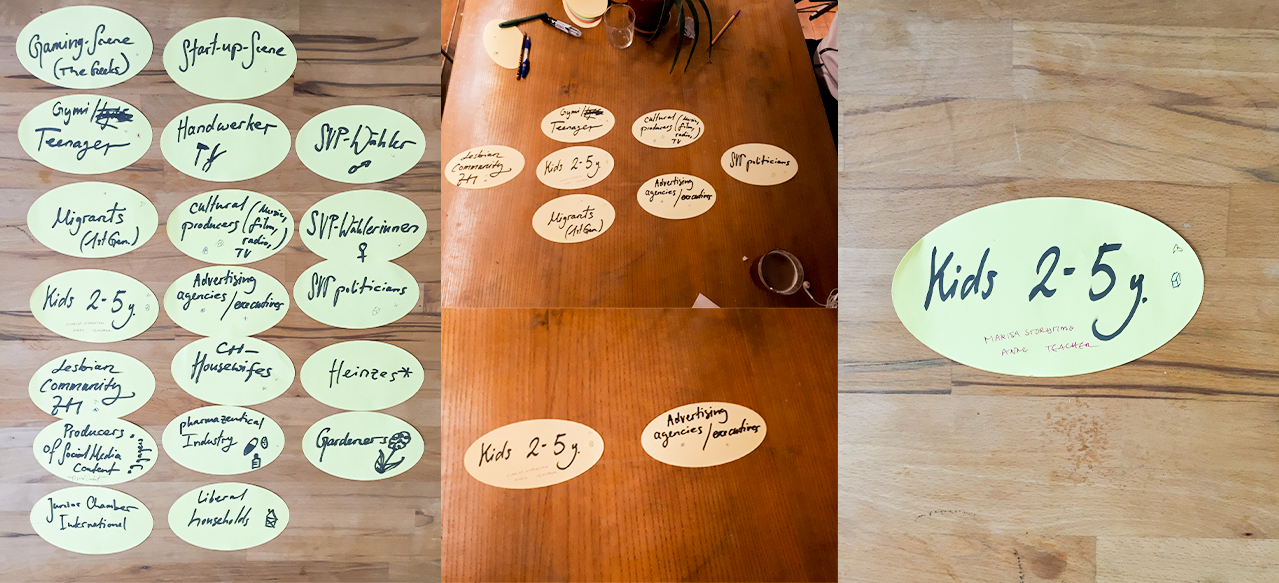 Gaming-Scene
(The Geeks)
Start-up-Scene
Gymi/
Teenager
Handwerker
SVP-Wähler
Migrants
(1st Gen.)
Cultural
producers (Music,
film,
radio,
TV
SVP-Wählerinnen
Kids 2-5 y.
Advertising
agencies/executives
SVP politicians
Lesbian
Community
ZH
CH-
Housewifes
Heinzes*
Producers
of Social Media
Content
pharmazeutical
Industry
Gardeners
Junior Chamber
International
Liberal
households
Gymi/
Teenager
Cultural (Music,
producers (film,
radio,)
TV
Lesbian
Community
ZH
Kids 2-5 y.
SVP politicians
Advertising
agencies/executives
Migrants
(1st Gen.)
Kids 2-5 y.
Advertising
agencies/executives
Kids 2-5 y.
STORYTIME
TEACHER